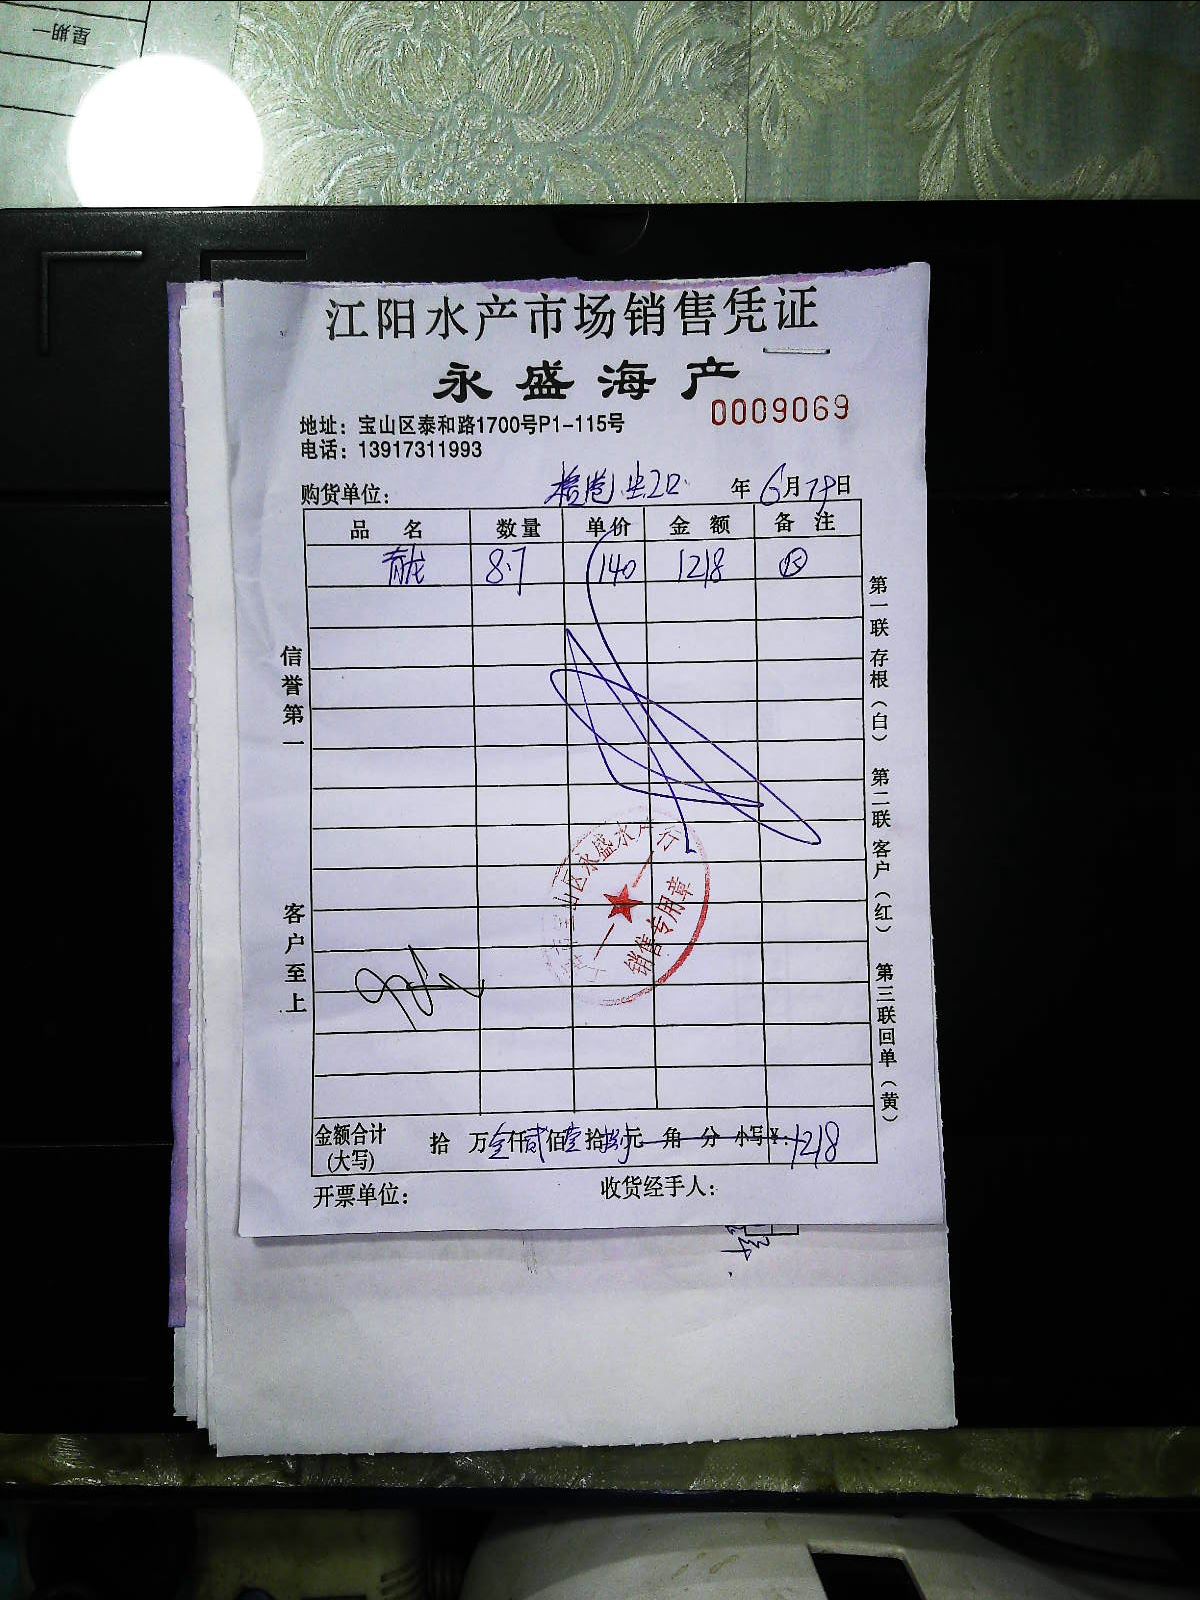 星期一
江阳水产市场销售凭证
永盛海产
0009069
地址：宝山区泰和路1700号P1-115号
电话：13917311993
购货单位： 年 6月 日
品 名 数量 单价 金额 备注
青龙 8.7 140 1218
信誉第一
客户至上
第一联 存根（白） 第二联 客户（红） 第三联 回单（黄）
宝山区永盛水产行
销售专用章
金额合计(大写) 拾 万壹仟贰佰壹拾捌元 角 分 小写¥:1218
开票单位： 收货经手人：